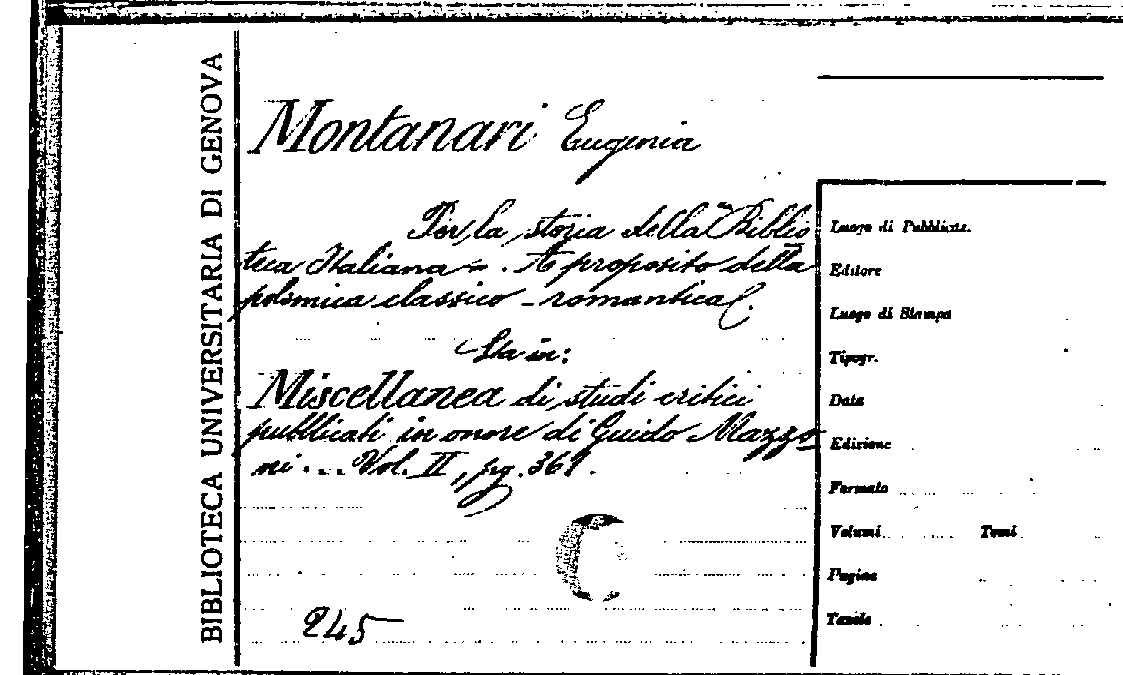 BIBLIOTECA UNIVERSITARIA DI GENOVA
Montanari Eugenia
Per la storia della "Biblio
teca Italiana". A proposito della
polemica classico-romantica.
Sta in:
Miscellanea di studi critici
pubblicati in onore di Guido Mazzo
ni... Vol. II, pg. 369.
C
245
Luogo di Pubblicaz.
Editore
Luogo di Stampa
Tipogr.
Data
Edizione
Formato
Volumi Tomi
Pagine
Tavole